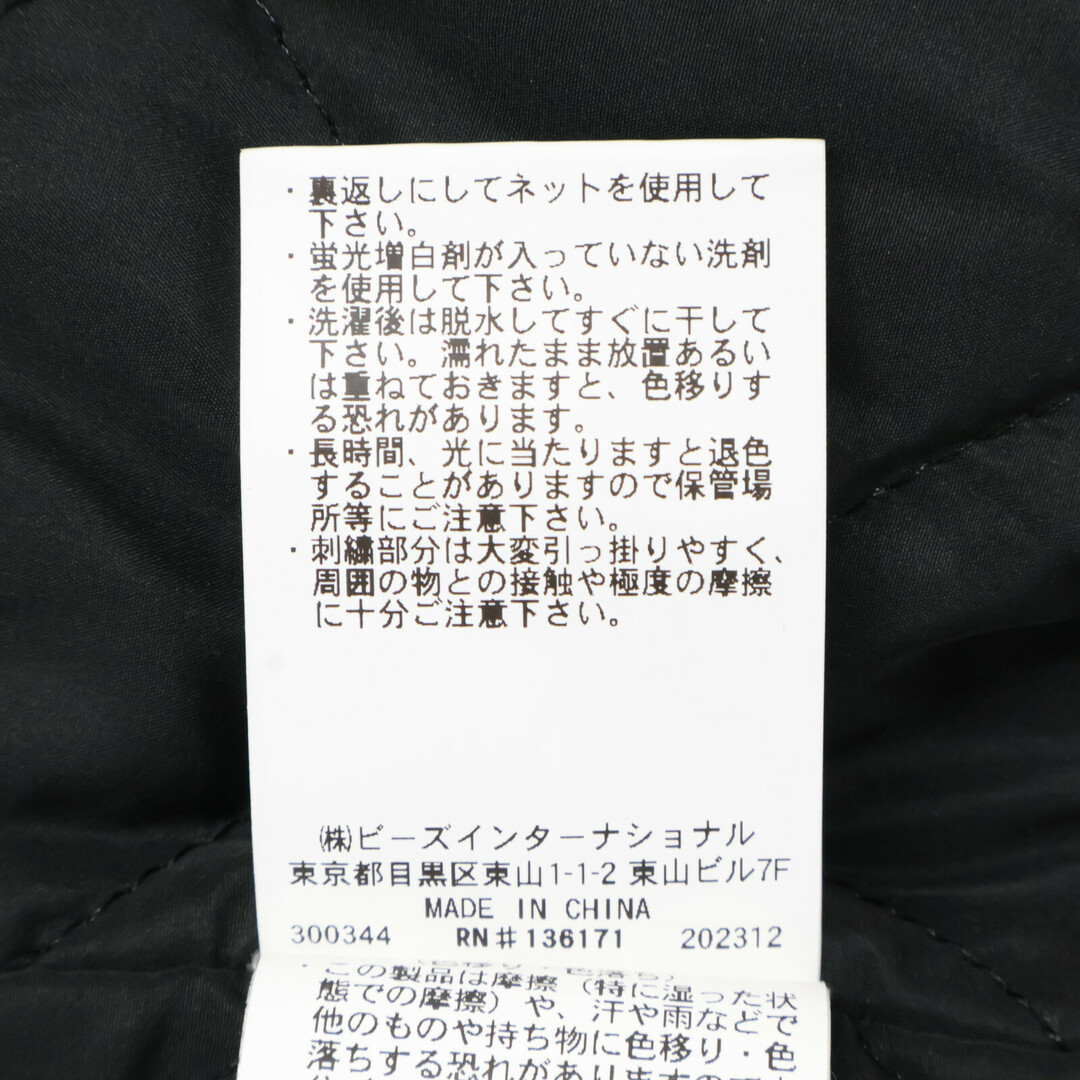 ・裏返しにしてネットを使用して
下さい。
・蛍光増白剤が入っていない洗剤
を使用して下さい。
・洗濯後は脱水してすぐに干して
下さい。濡れたまま放置あるい
は重ねておきますと、色移りす
る恐れがあります。
・長時間、光に当たりますと退色
することがありますので保管場
所等にご注意下さい。
・刺繍部分は大変引っ掛りやすく、
周囲の物との接触や極度の摩擦
に十分ご注意下さい。
㈱ビーズインターナショナル
東京都目黒区東山1-1-2 東山ビル7F
MADE IN CHINA
300344 RN#136171 202312
・この製品は摩擦(特に湿った状
態での摩擦)や、汗や雨などで
他のものや持ち物に色移り・色
落ちする恐れがあります